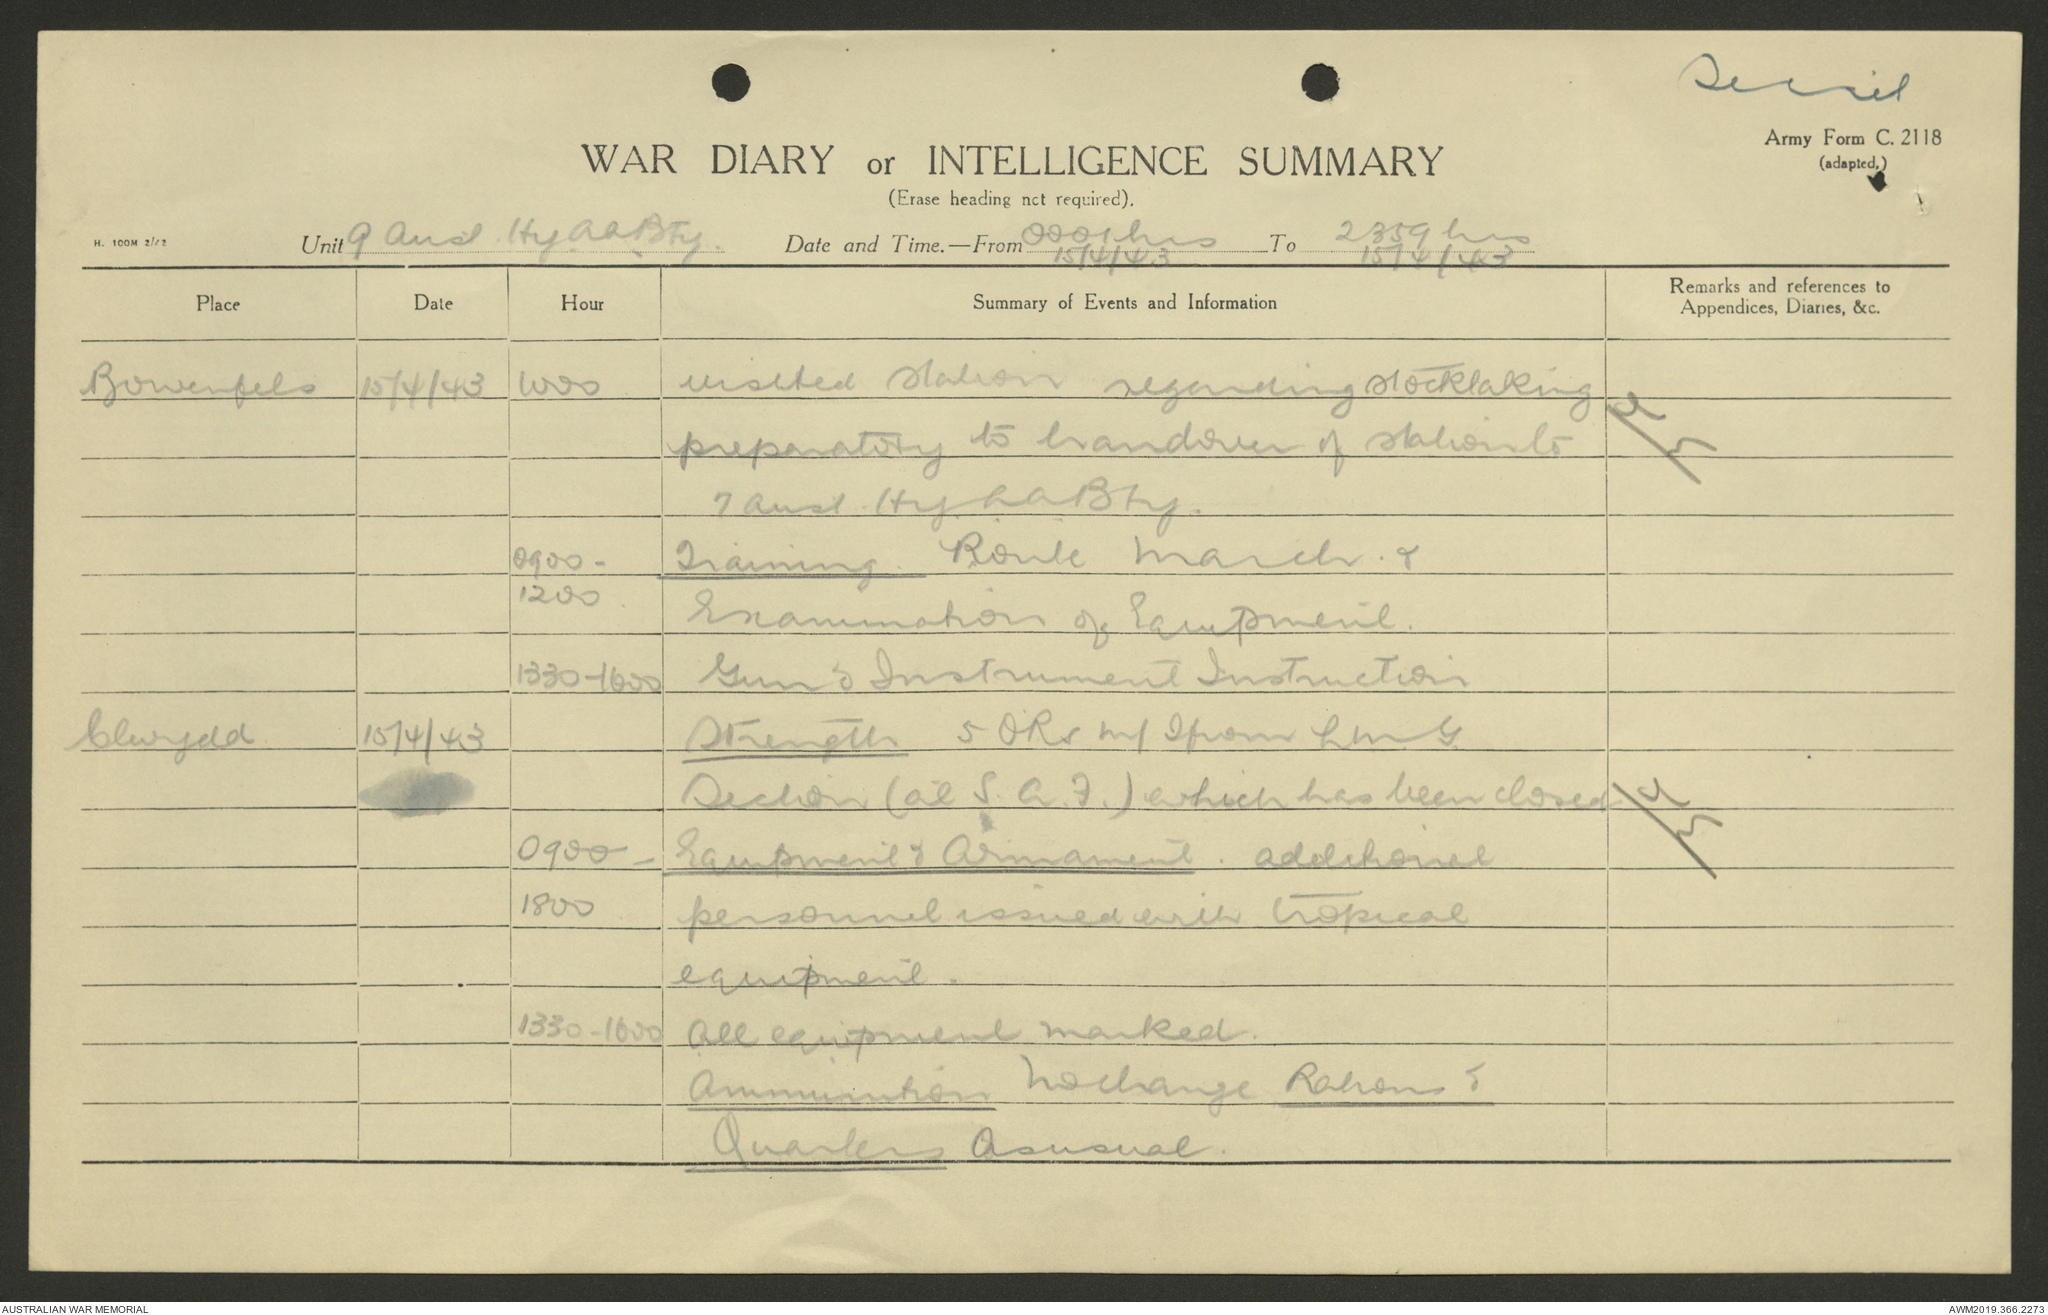 Secret
Army Form C. 2118
(adapted.)
WAR DIARY or INTELLIGENCE SUMMARY
(Erase heading not required).
H. 100M 2/42
Unit 9 Aust. Hy AA Bty. Date and Time.—From 0001 hrs To 2359 hrs
15/4/43 15/4/43
Place Date Hour Summary of Events and Information Remarks and references to
Appendices, Diaries, &c.
Bowenfels 15/4/43 1000 visited station regarding stocktaking
preparatory to handover of station to
7 Aust. Hy AA Bty.
0900 - Training. Route March &
1200 Examination of Equipment.
1330-1600 Gun & Instrument Instruction
Clwydd 15/4/43 Strength 5 ORs M/I from LMG
Section (at S.A.F.) which has been closed
0900 - Equipment & Armament. additional
1800 personnel issued with tropical
equipment.
1330-1600 All equipment marked.
Ammunition No change Rations &
Quarters As usual.
AUSTRALIAN WAR MEMORIAL
AWM2019.366.2273